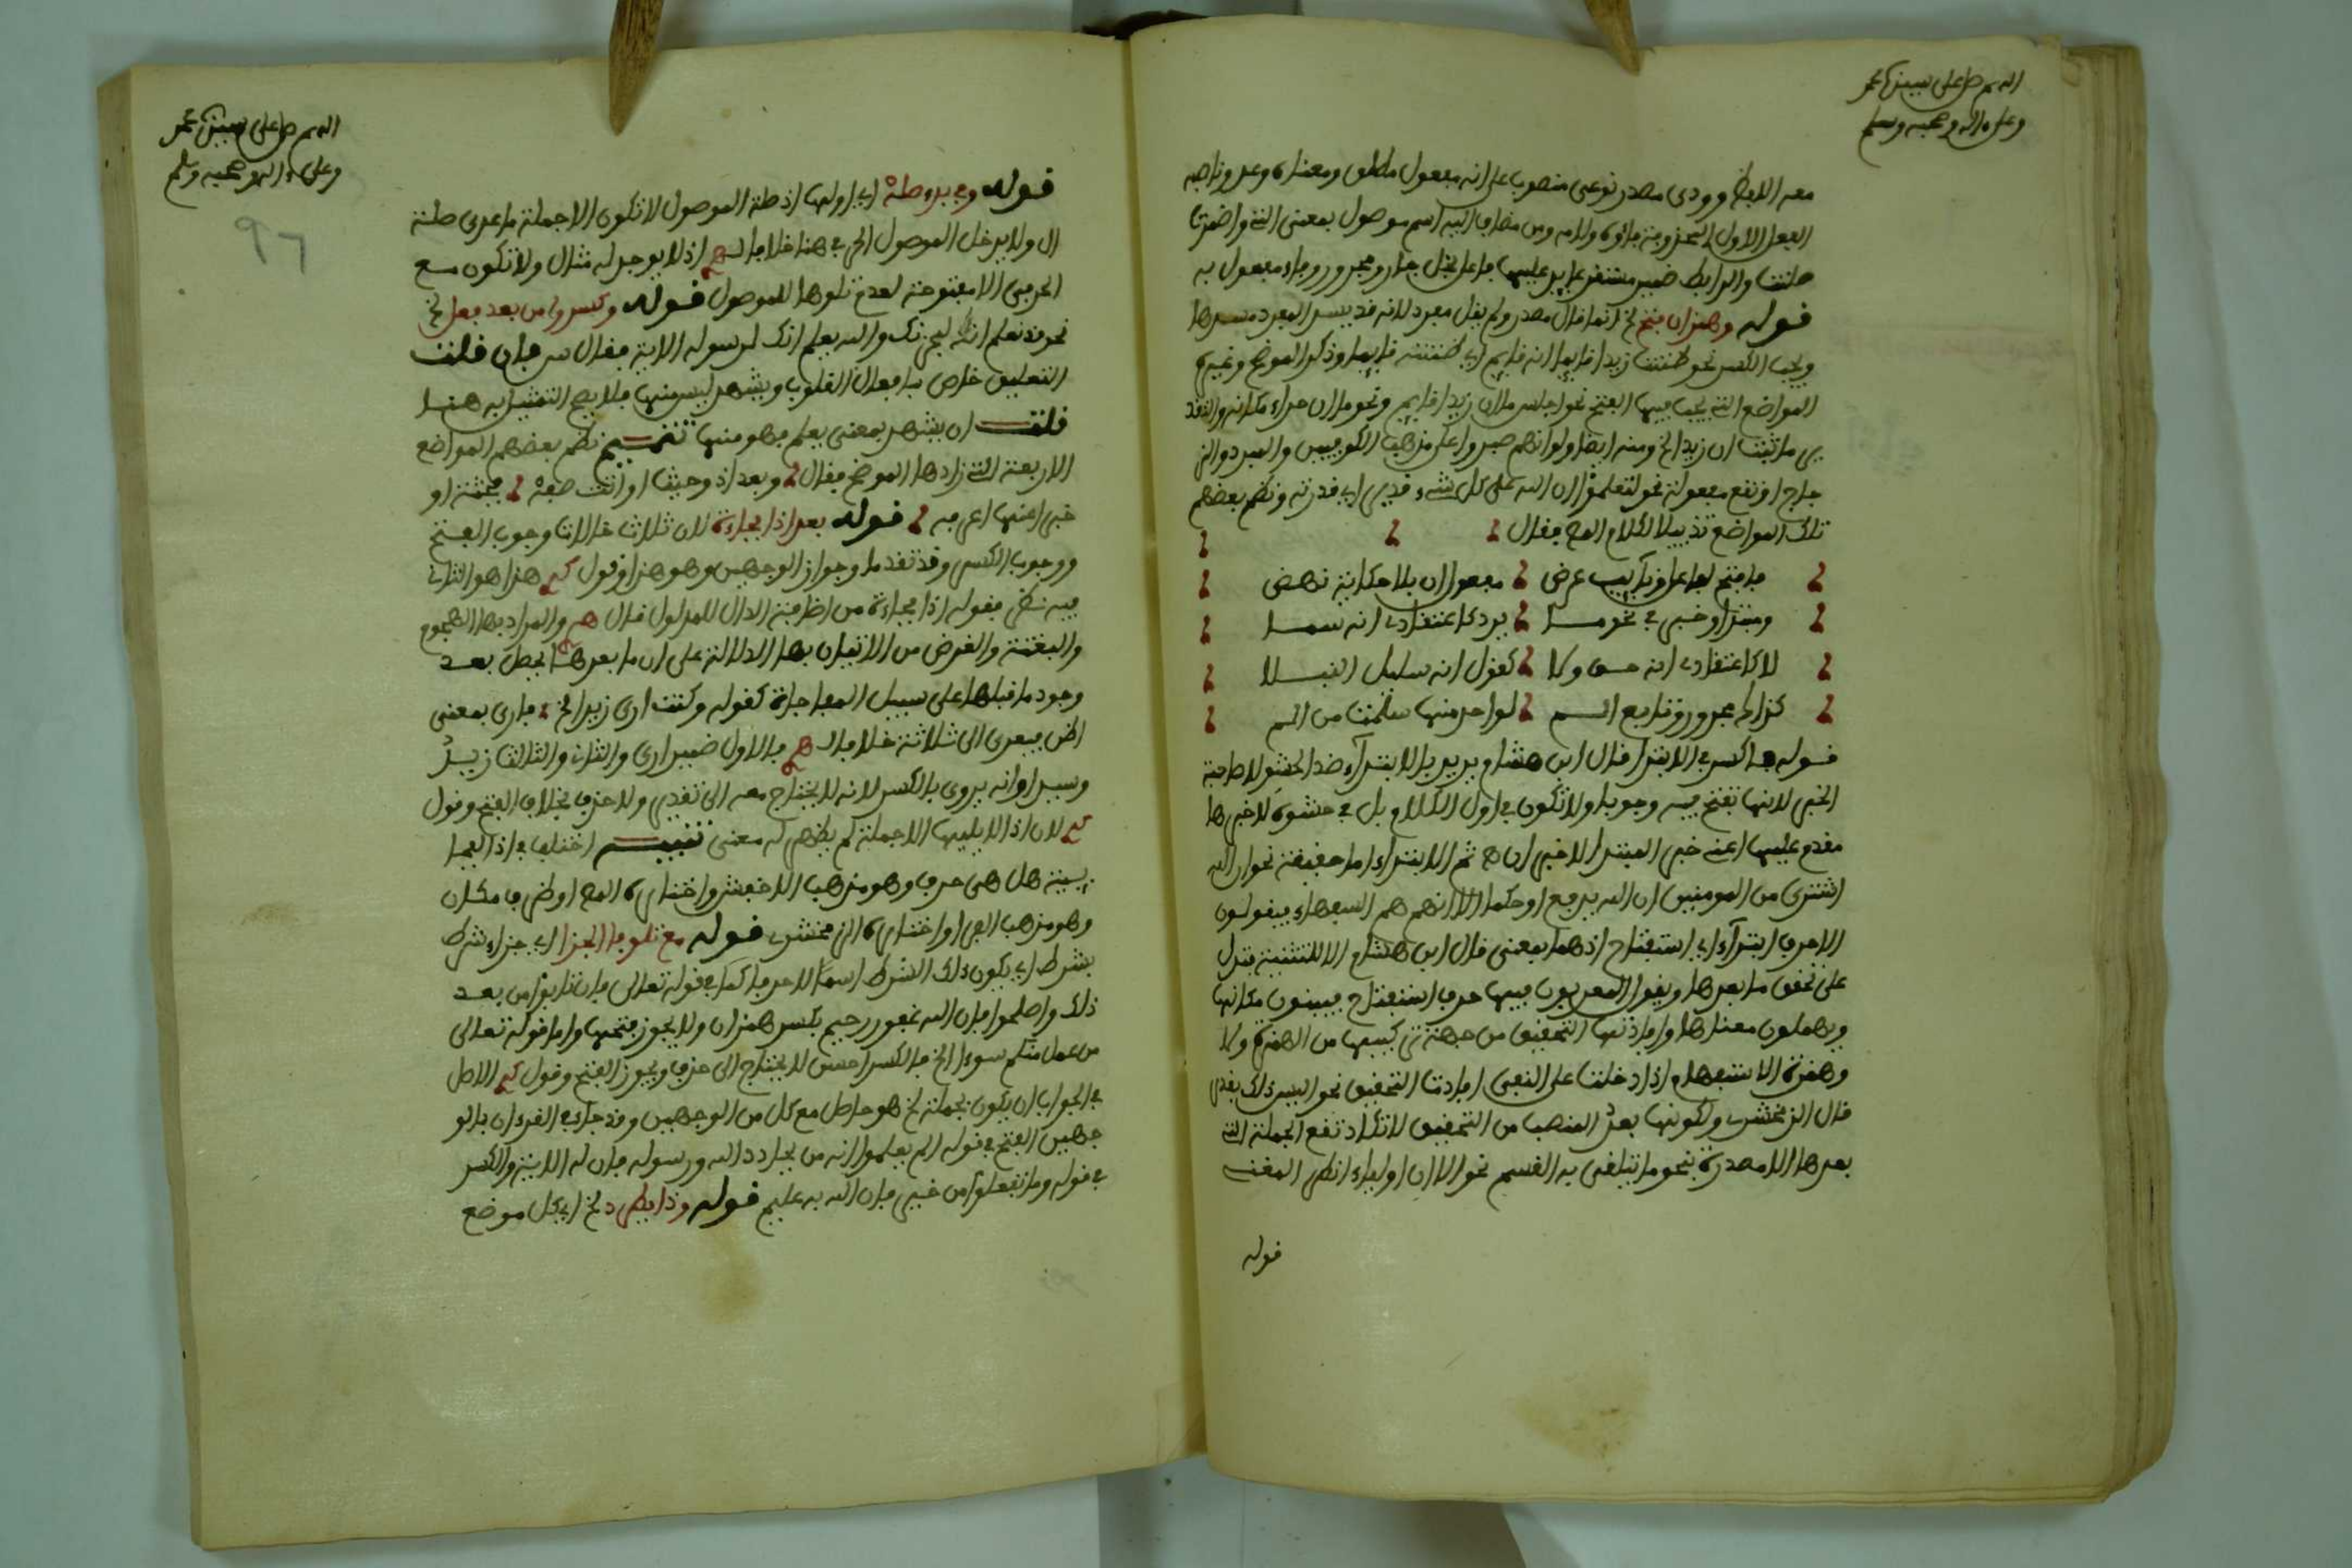 اللهم صل على سيدنا محمد
وعلى ءاله وصحبه وسلم
معه اللبظ وودى مصدر نوعى منصوب على انه مفعول مطلق ومعناه وعد وناصبه
الفعل الاول المحذوفة فاؤه ولامه ومن مضاف اليه اسم موصول بمعنى التى واضمرت
صلتها والرابط ضمير مستتر عايد عليها فاعل لخل جار ومجرور وفاء مفعول به
قوله وهمز ان افتح الخ انما قال مصدر ولم يقل مفرد لانه قد يسد المفرد مسدها
ويجب الكسر نحو ظننت زيدا قايما انه قايم اى ظننته قايما وذكر الموضح وغيره
المواضع التى يجب فيها الفتح نحو اجلس ما ان زيدا قايم ونحو ما ان حراء مكانه والتقد
ير ما ثبت ان زيدا الخ ومنه ايضا ولو انهم صبروا على مذهب الكوفيين والمبرد والز
جاج او تقع مفعولة نحو لتعلموا ان الله على كل شىء قدير اى قدرته ونظم بعضهم
تلك المواضع تذييلا لكلام المص فقال
فافتح لفاعل ونايب عرض مفعول ان بلا حكاية نهض
ومبتدا وخبر فى نحو ما يرد كاعتقادى انه سما
لا كاعتقادى انه حق ولا كقول انه سليل النبلا
كذاك مجرور وتابع اسم لواحد منها سلمت من الم
قوله فاكسر فى الابتدا قال ابن هشام يريد بالابتدآء ضد الحشو لا طالبة
الخبر لانها تفتح فيه وجوبا ولا تكون فى اول الكلام بل فى حشوه لان خبرها
مقدم عليها اعنى خبر المبتدا لا خبر ان اهـ ثم الابتداء اما حقيقة نحو ان الله
اشترى من المومنين ان الله يدفع او حكما الا انهم هم السفهاء فيقولون
الا حرف ابتدآء اى استفتاح اذ هما بمعنى قال ابن هشام الا للتنبيه فتدل
على تحقق ما بعدها ويقول المعربون فيها حرف استفتاح فيبينون مكانها
ويهملون معناها وافادتها التحقيق من جهة تركيبها من الهمزة ولا
وهمزة الاستفهام اذا دخلت على النفى افادت التحقيق نحو اليس ذلك بقدر
قال الزمخشرى ولكونها بعد المنصب من التحقيق لا تكاد تقع الجملة التى
بعدها الا مصدرة بنحو ما يتلقى به القسم نحو الا ان اولياء انظر المغنى
قوله
اللهم صل على سيدنا محمد
وعلى ءاله وصحبه وسلم
٩٦
قوله وفى بدو صلة اى اولها اذ صلة الموصول لا تكون الا جملة ما عدى صلة
ال ولا يدخل الموصول الحرفى هنا خلافا لـ اذ لا يوجد له مثال ولا تكون مع
الحرفى الا مفتوحة لعدم تلوها للموصول قوله وكسروا من بعد فعل الخ
نحو قد نعلم انه ليحزنك والله يعلم انك لرسوله الاية فقال س فان قلت
التعليق خاص بافعال القلوب ويشهد ليس منها فلا يصح التمثيل به هنا
قلت ان يشهد بمعنى يعلم فهو منها تتميم نظم بعضهم المواضع
الاربعة التى زادها الموضح فقال وبعد اذ وحيث او اتت صفة محبته او
خبرا عنها اعرفه قوله بعد اذا فجاءة لان ثلاث حالات وجوب الفتح
ووجوب الكسر وقد تقدما وجواز الوجهين وهو هذا وقول هذا هو الثانى
فيه نظر فقوله اذا فجاءة من اضافة الدال للمدلول قال والمراد بها الهجوم
والبغتة والغرض من الاتيان بها الدلالة على ان ما بعدها يحصل بعد
وجود ما قبلها على سبيل المفاجاة كقوله وكنت ارى زيدا الخ فارى بمعنى
اظن فيعدى الى ثلاثة خلافا لـ فالاول ضمير ارى والثانى والثالث زيد
وسيدا وانه يروى بالكسر لانه لا يحتاج معه الى تقدير ولا حذف بخلاف الفتح وقول
لان اذا لا يليها الا جملة لم يظهر له معنى تنبيه اختلف فى اذا الفجا
ئية هل هى حرف وهو مذهب الاخفش واختاره المص او ظرف مكان
وهو مذهب الفرا واختاره الزمخشرى قوله مع تلو فا الجزا اى جزاء شرط
بشرط اى يكون ذلك الشرط اسما لا حرفا كما فى قوله تعالى فان تابوا من بعد
ذلك واصلحوا فان الله غفور رحيم بكسر همز ان ولا يجوز فتحها واما قوله تعالى
من عمل منكم سوءا الخ فالكسر احسن لا يحتاج الى حذف ويجوز الفتح وقول الاصل
فى الجواب ان يكون بجملة الخ هو حاصل مع كل من الوجهين وقد جاء فى القرءان بالو
جهين الفتح فى قوله الم يعلموا انه من يحادد الله ورسوله فان له الاية والكسر
فى قوله وما تفعلوا من خير فان الله به عليم قوله وذا يطرد الخ اى بكل موضع